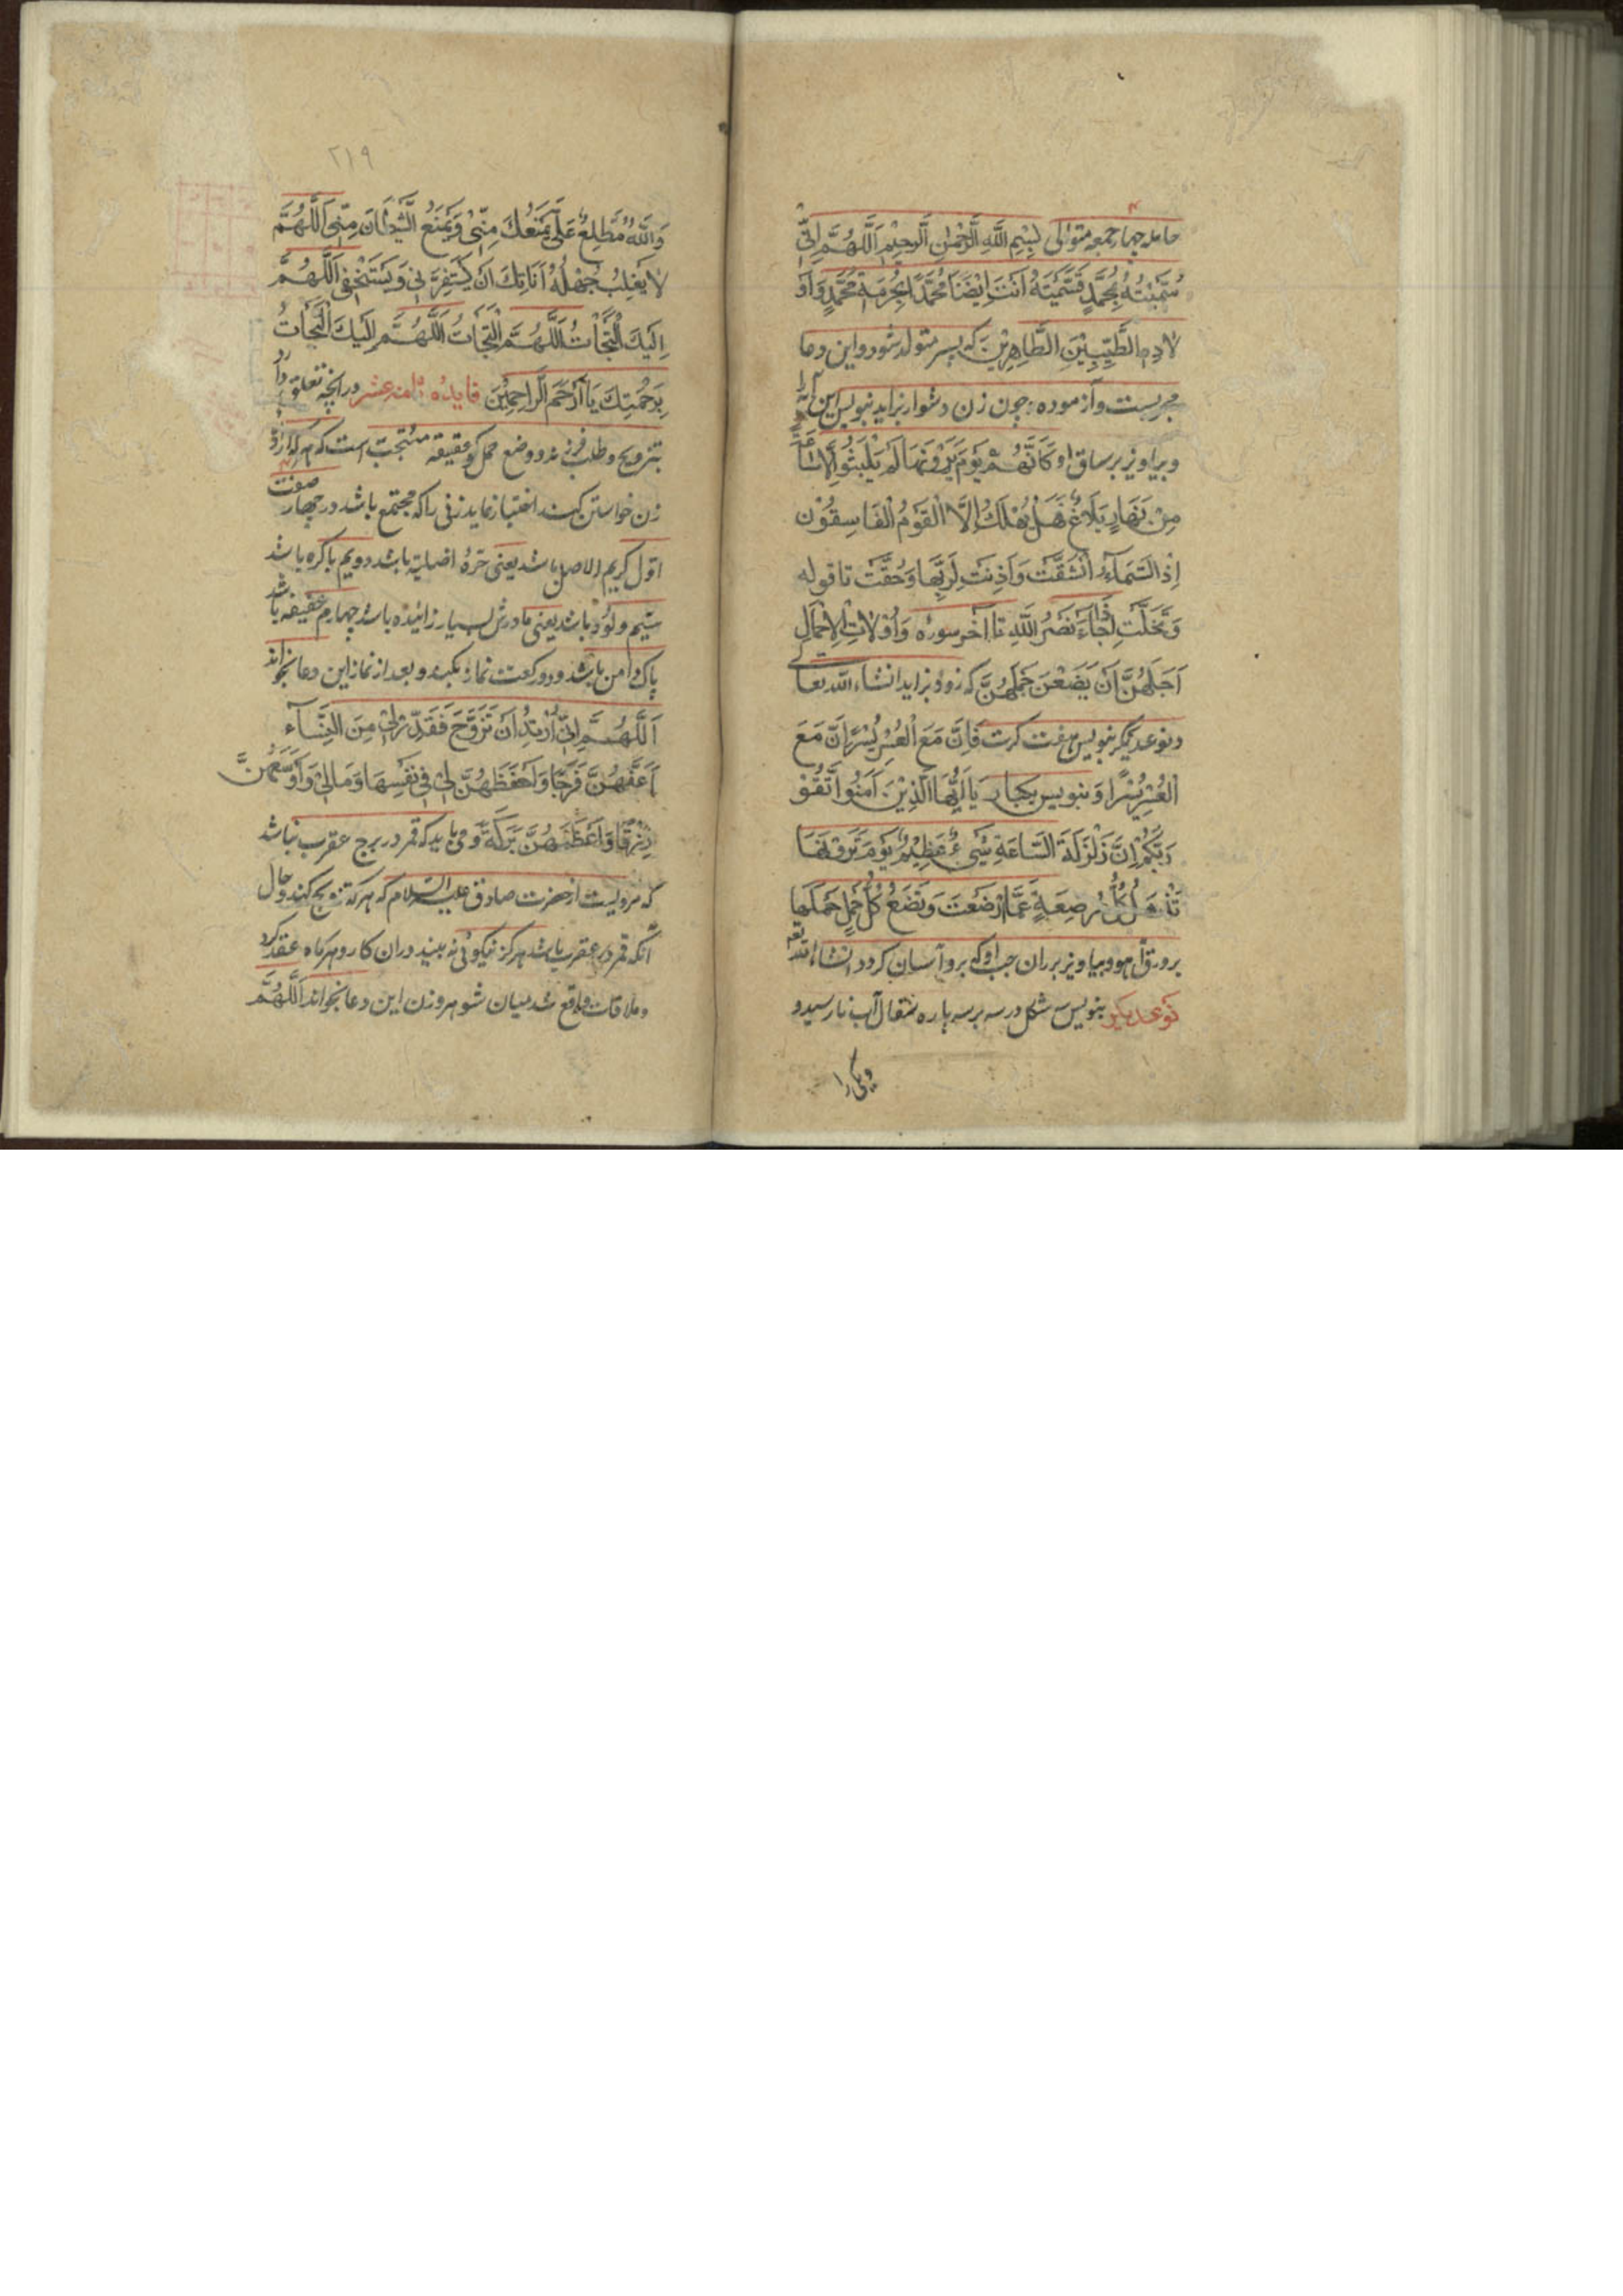 حامله چهار جمعه متوالی بِسْمِ اللَّهِ الرَّحْمٰنِ الرَّحِيْمِ اَللّٰهُمَّ اِنِّی
سَمَّيْتُهُ بِمُحَمَّدٍ فَسَمَّيْتَهُ اَنْتَ اَيْضًا مُحَمَّدًا بِحُرْمَةِ مُحَمَّدٍ وَاَوْ
لادِهِ الطَّيِّبِيْنَ الطَّاهِرِيْنَ که پسر متولد شود و این دعا
مجربست و آزموده چون زن دشوار زاید بنویس این
و بیاویز بر ساق او کَاَنَّهُمْ يَوْمَ يَرَوْنَهَا لَمْ يَلْبَثُوا اِلَّا سَاعَةً
مِنْ نَهَارٍ بَلَاغٌ فَهَلْ يُهْلَكُ اِلَّا الْقَوْمُ الْفَاسِقُوْنَ
اِذَا السَّمَآءُ انْشَقَّتْ وَاَذِنَتْ لِرَبِّهَا وَحُقَّتْ تا قوله
وَتَخَلَّتْ اِذَا جَاءَ نَصْرُ اللَّهِ تا آخر سوره وَاُوْلَاتُ الْاَحْمَالِ
اَجَلُهُنَّ اَنْ يَضَعْنَ حَمْلَهُنَّ که زود بزاید انشاء الله تعالی
و نوعدیکر بنویس هفت کرت فَاِنَّ مَعَ الْعُسْرِ يُسْرًا اِنَّ مَعَ
الْعُسْرِ يُسْرًا وَ بنویس یکبار يَا اَيُّهَا الَّذِيْنَ اٰمَنُوا اتَّقُوْا
رَبَّكُمْ اِنَّ زَلْزَلَةَ السَّاعَةِ شَيْءٌ عَظِيْمٌ يَوْمَ تَرَوْنَهَا
تَذْهَلُ كُلُّ مُرْضِعَةٍ عَمَّا اَرْضَعَتْ وَتَضَعُ كُلُّ حَمْلٍ حَمْلَهَا
بر ورق آهو و بیاویز بر ران چپ او که برو آسان کردد انشاء الله تعه
نوعدیکر بنویس شکل در سه بر سه پاره سفال آب نارسید و
ویکی را
۲۱۹
وَاللَّهُ مُطَّلِعٌ عَلَىَّ يَمْنَعُكَ مِنِّیْ وَيَمْنَعُ الشَّيْطَانَ مِنِّی اَللّٰهُمَّ
لَا يَغْلِبُ جَهْلُهُ اَنَاتَكَ اَنْ يَسْتَفِزَّنِیْ وَيَسْتَخِفَّنِیْ اَللّٰهُمَّ
اِلَيْكَ الْتَجَأْتُ اَللّٰهُمَّ اِلْتَجَأْتُ اَللّٰهُمَّ اِلَيْكَ الْتَجَأْتُ
بِرَحْمَتِكَ يَا اَرْحَمَ الرَّاحِمِيْنَ فایده ثامنه عشر در آنچه تعلق دارد
بتزویج و طلب فرزند و وضع حمل و عقیقه مستحبست که هرکه اراده
زن خواستن کند اختیار نماید زنی را که مجتمع باشد در چهار صفت
اول کریم الاصل باشد یعنی حره اصلیه باشد دویم باکره باشد
سیّم ولود باشد یعنی مادرش بسیار زائیده باشد چهارم عفیفه باشد
پاک دامن باشد و دو رکعت نماز بکند و بعد از نماز این دعا بخواند
اَللّٰهُمَّ اِنِّیْ اُرِيْدُ اَنْ تَزَوَّجَ فَقَدِّرْ لِیْ مِنَ النِّسَآءِ
اَعَفَّهُنَّ فَرْجًا وَاَحْفَظَهُنَّ لِیْ فِیْ نَفْسِهَا وَمَالِیْ وَاَوْسَعَهُنَّ
رِزْقًا وَاَعْظَمَهُنَّ بَرَكَةً و می باید که قمر در برج عقرب نباشد
که مرویست از حضرت صادق علیه السلام که هرکه تزویج کند و حال
آنکه قمر در عقرب باشد هرکز نیکوئی نه بیند در آن کار و هرگاه عقد کرد
و ملاقات واقع شد میان شوهر و زن این دعا بخواند اَللّٰهُمَّ